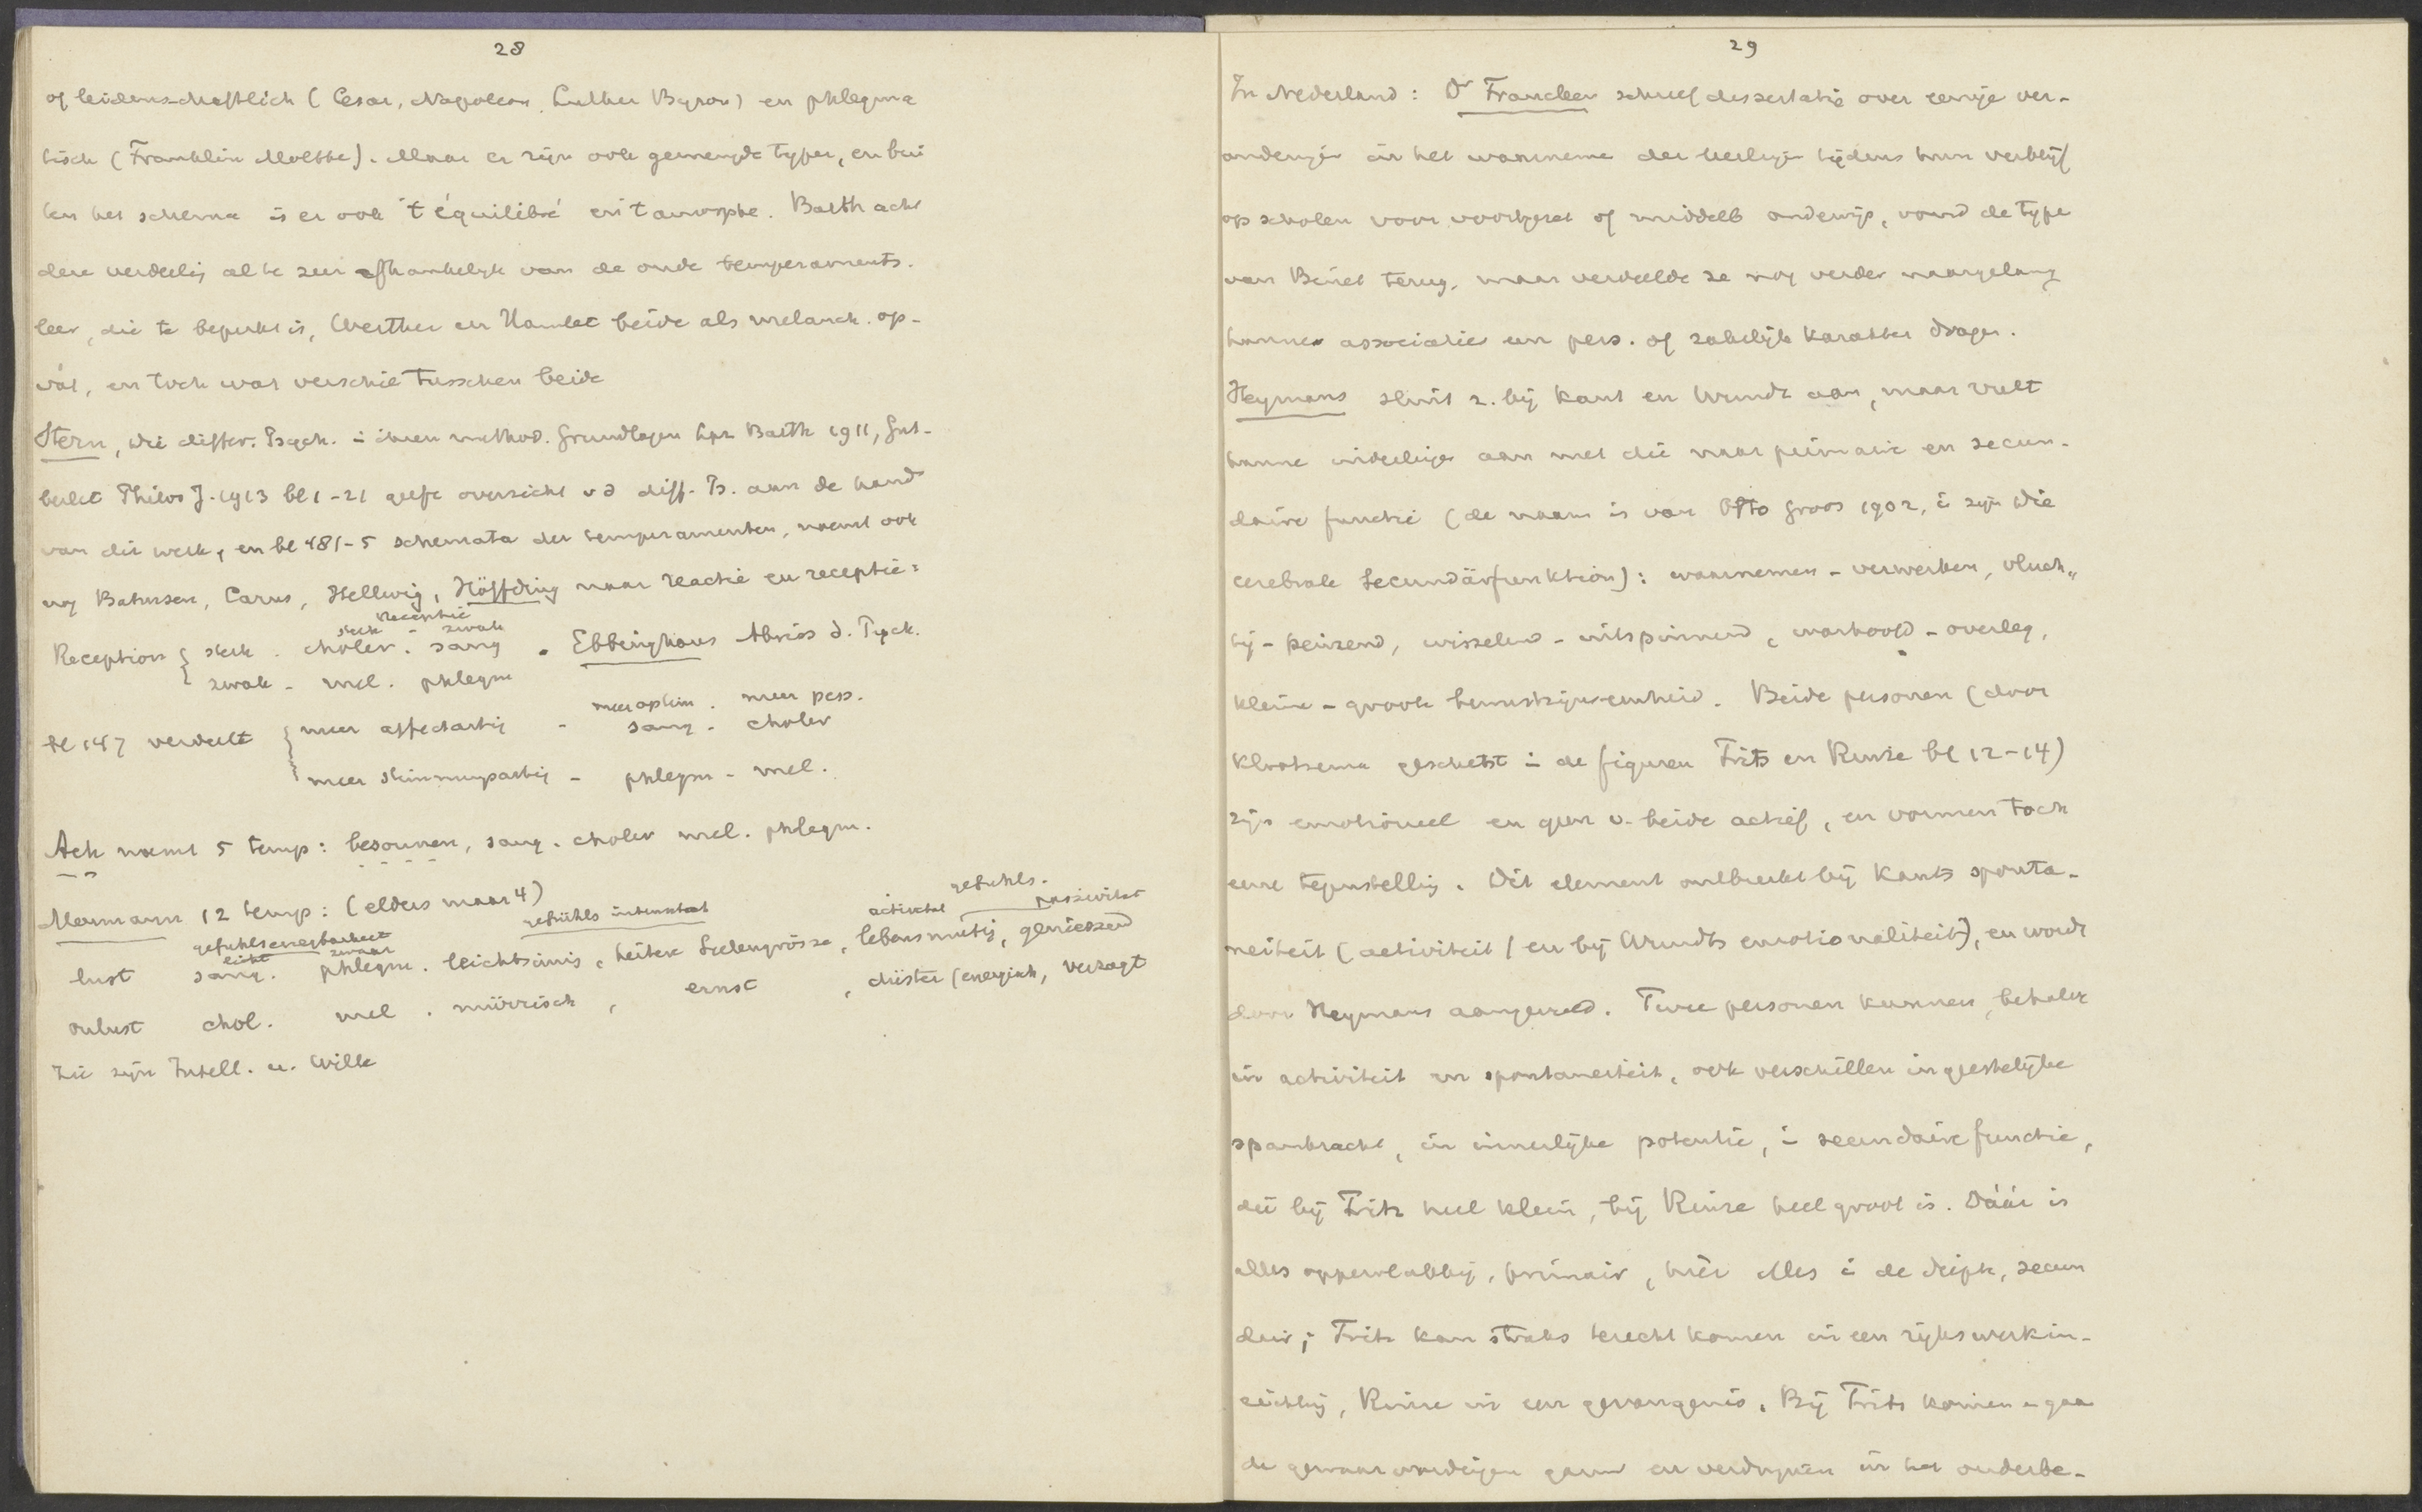 28
of leidenschaftlich (Cesar, Napoleon, Luther Byron) en phlegma
tisch (Franklin Moltke). Maar er zijn ook gemengde typen, en bui
ten het schema is er ook 't équilibré en 't amorphe. Barth acht
deze verdeelig al te zeer afhankelijk van de oude temperaments.
leer, die te beperkt is, Werther en Hamlet beide als melanch. op-
vat, en toch wat verschil tusschen beide
Stern, die differ. Psych. in ihren method. Grundlagen Lpz Barth 1911, Gut-
berlet Philos J. 1913 bl 1-21 geeft overzicht v d diff. Ps. aan de hand
van dit werk, en bl 481-5 schemata der temperamenten, noemt ook
nog Bahnsen, Carus, Hellwig, Höffding naar reactie en receptie:
Reactie
sterk - zwak
Reception { sterk . choler . sang . Ebbinghaus Abriss d. Psych.
zwak - mel. phlegm
meer optim . meer pess.
bl 147 verdeelt { meer affectartig - sang . choler
meer stimmungsartig - phlegm - mel.
Ach noemt 5 temp: besonnen, sang. choler mel. phlegm.
Meumann 12 temp: (elders maar 4)
gefühlserregbarkeit gefühls intensität activität gefühls. passivität
licht zwaar
lust sang. phlegm. leichtsinnig, heitere Seelengrösse, lebensmutig, genieszend
onlust chol. mel. mürrisch, ernst, düster (energisch, verzagt
Zie zijn Intell. u. Wille
29
In Nederland: Dr Francken schreef dissertatie over eenige ver-
anderingen in het waarnemen der leerlingen tijdens hun verblijf
op scholen voor voortgezet of middelb onderwijs, vond de type
van Binet terug, maar verdeelde ze nog verder naargelang
hunne associaties een pers. of zakelijk karakter dragen.
Heymans sluit z. bij Kant en Wundt aan, maar vult
hunne indeelingen aan met die naar primaire en secun-
daire functie (de naam is van Otto Gross 1902, in zijn Die
cerebrale Secundärfunktion): waarnemen - verwerken, vluch„
tig - peinzend, wisselend - uitspinnend, warhoofd - overleg,
kleine - groote bewustzijnseenheid. Beide personen (door
Klootsema geschetst in de figuren Frits en Rinze bl 12-14)
zijn emotioneel en geen v. beide actief, en vormen toch
eene tegenstelling. Dit element ontbreekt bij Kants sponta-
neiteit (activiteit) en bij Wundts emotionaliteit), en wordt
door Heymans aangevuld. Twee personen kunnen, behalve
in activiteit en spontaneiteit, ook verschillen in geestelijke
spankracht, in innerlijke potentie, in secundaire functie,
die bij Frits heel klein, bij Rinze heel groot is. Dáár is
alles oppervlakkig, primair, hier alles in de diepte, secun
dair; Frits kan straks terecht komen in een rijkswerkin-
richting, Rinze in een gevangenis. Bij Frits komen en gaan
de gewaarwordingen gauw en verdwijnen in het onderbe-